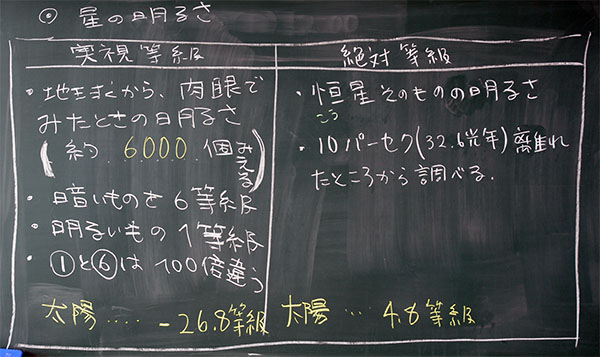 ◎ 星の明るさ
実視等級
・地球から、肉眼で
みたときの明るさ
(約 6000 個みえる)
・暗いものを6等級
・明るいもの1等級
・①と⑥は100倍違う
太陽‥‥ -26.8等級
絶対等級
・恒星そのものの明るさ
こう
・10パーセク(32.6光年)離れ
たところから調べる.
太陽… 4.8等級